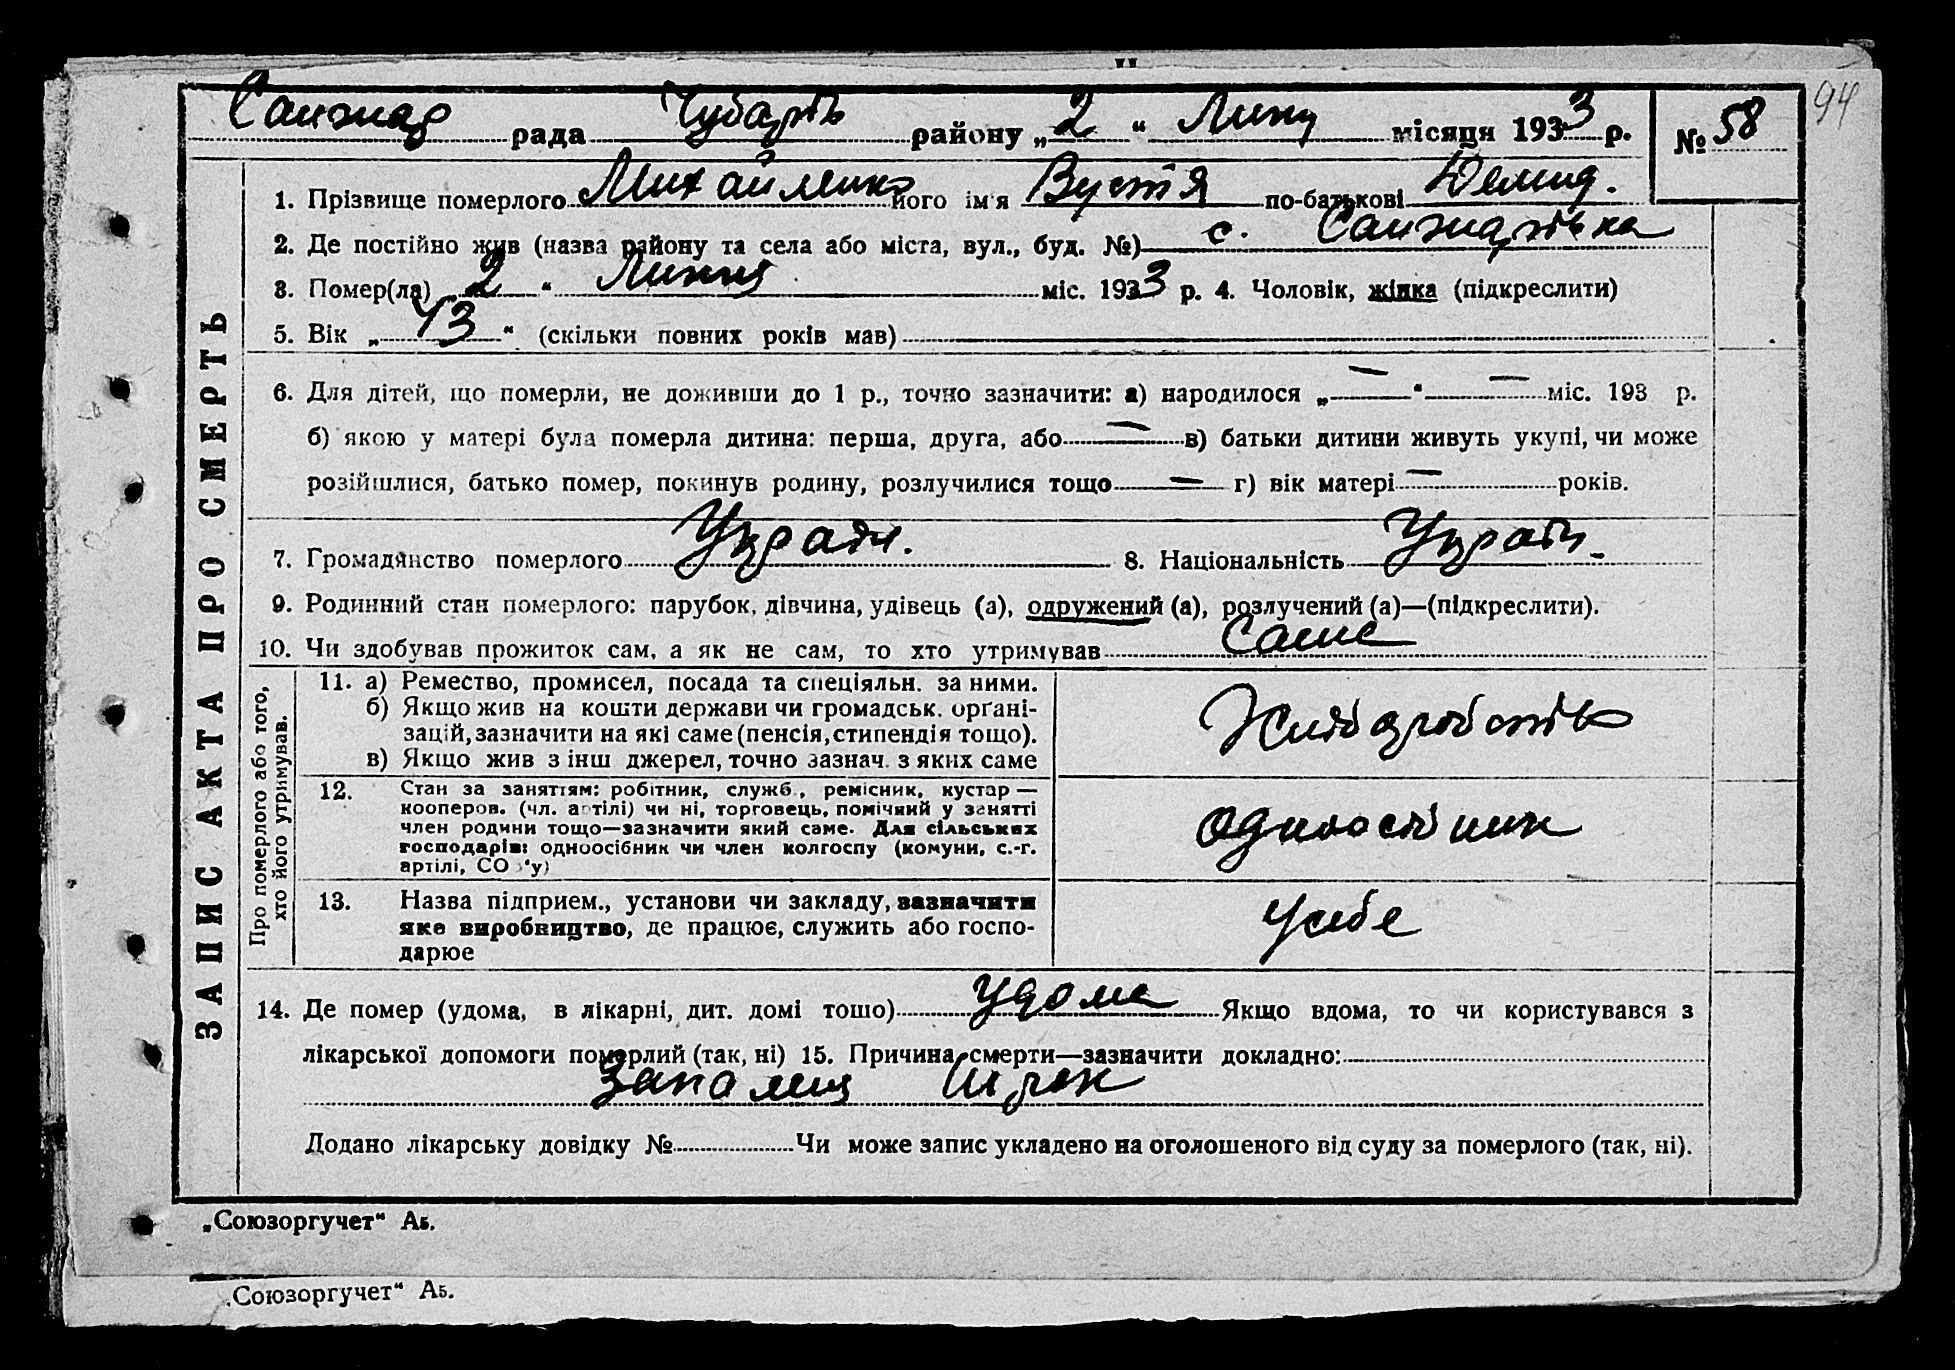 94
Санжар рада Чубарів району „2“ Липня місяця 1933 р. № 58
ЗАПИС АКТА ПРО СМЕРТЬ
1. Прізвище померлого Михайленко його ім'я Вустя по-батькові Демид.
2. Де постійно жив (назва району та села або міста, вул., буд. №) с. Санжарівка
3. Помер(ла) „2“ Липня міс. 1933 р. 4. Чоловік, жінка (підкреслити)
5. Вік „43“ (скільки повних років мав)
6. Для дітей, що померли, не доживши до 1 р., точно зазначити: а) народилося „—“ — міс. 193 р.
б) якою у матері була померла дитина: перша, друга, або — в) батьки дитини живуть укупі, чи може
розійшлися, батько помер, покинув родину, розлучилися тощо — г) вік матері — років.
7. Громадянство померлого Україн. 8. Національність Україн.
9. Родинний стан померлого: парубок, дівчина, удівець (а), одружений (а), розлучений (а)—(підкреслити).
10. Чи здобував прожиток сам, а як не сам, то хто утримував Саме
Про померлого або того, хто його утримував.
11. а) Ремество, промисел, посада та спеціяльн. за ними.
б) Якщо жив на кошти держави чи громадськ. орґані-
зацій, зазначити на які саме (пенсія, стипендія тощо).
в) Якщо жив з інш джерел, точно зазнач. з яких саме
Хліборобств
12. Стан за заняттям: робітник, служб., ремісник, кустар —
кооперов. (чл. артілі) чи ні, торговець, помічний у занятті
член родини тощо—зазначити який саме. Для сільських
господарів: одноосібник чи член колгоспу (комуни, с.-г.
артілі, СО у)
одноосібник
13. Назва підприєм., установи чи закладу, зазначити
яке виробництво, де працює, служить або госпо-
дарює
У себе
14. Де помер (удома, в лікарні, дит. домі тощо) удома Якщо вдома, то чи користувався з
лікарської допомоги померлий (так, ні) 15. Причина смерти—зазначити докладно:
Запалия
Додано лікарську довідку № Чи може запис укладено на оголошеного від суду за померлого (так, ні).
„Союзоргучет“ Аб.
„Союзоргучет“ Аб.